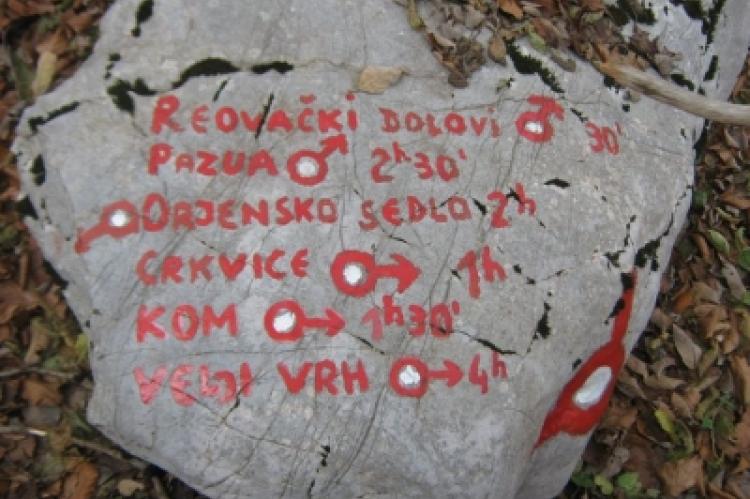 REOVAČKI DOLOVI 30'
PAZUA 2h 30'
ORJENSKO SEDLO 2h
CRKVICE 1h
KOM 1h 30'
VELJI VRH 4h